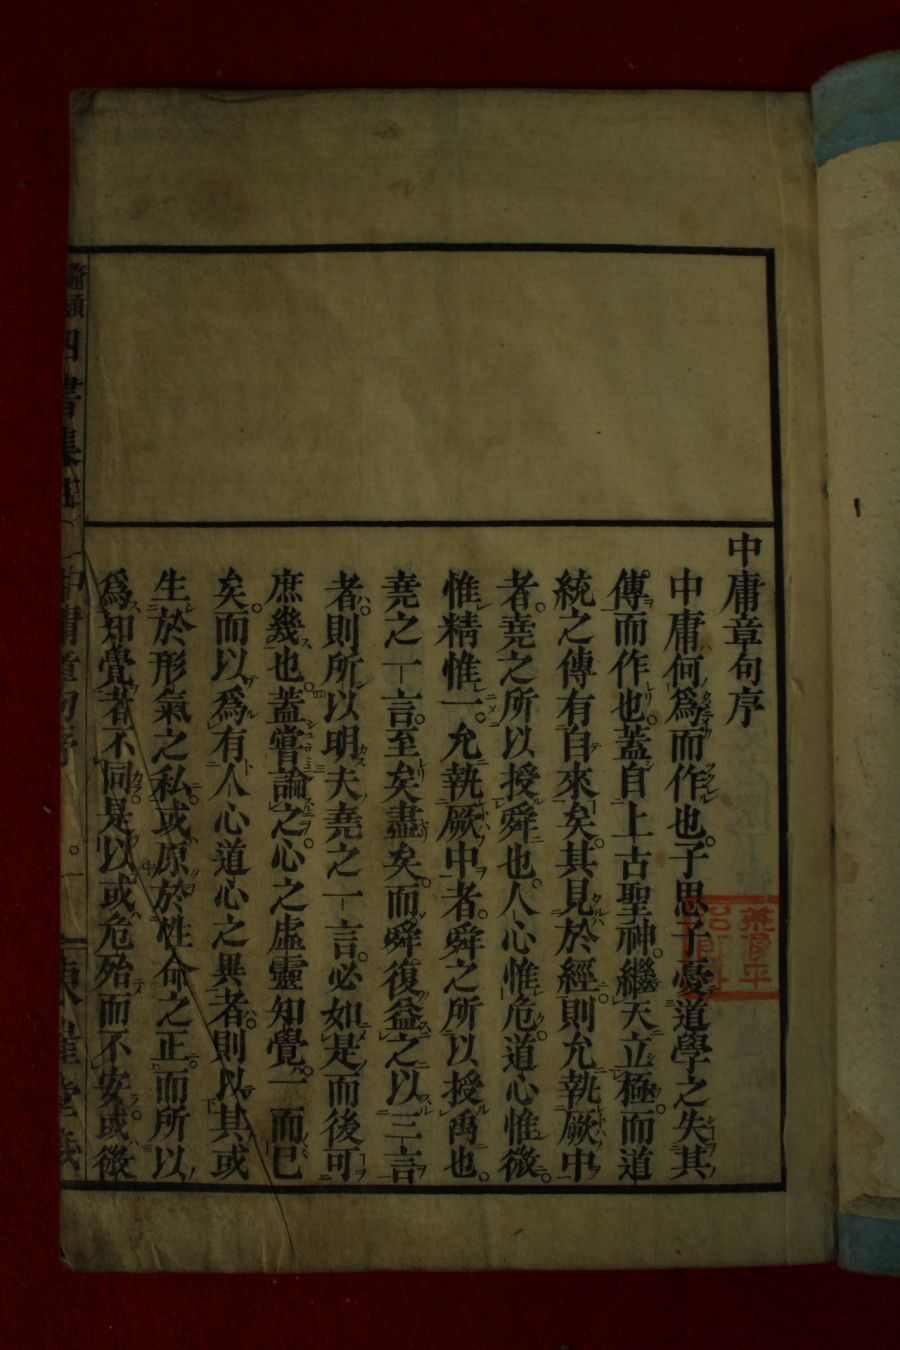 中庸章句序
中庸何爲而作也。子思子憂道學之失其
傳而作也。蓋自上古聖神。繼天立極。而道
統之傳有自來矣。其見於經。則允執厥中
者。堯之所以授舜也。人心惟危。道心惟微。
惟精惟一。允執厥中者。舜之所以授禹也。
堯之一言。至矣盡矣。而舜復益之以三言
者。則所以明夫堯之一言。必如是而後可
庶幾也。蓋嘗論之。心之虛靈知覺。一而已
矣。而以爲有人心道心之異者。則以其或
生於形氣之私。或原於性命之正。而所以
爲知覺者不同。是以或危殆而不安。或微
四書集 中庸章句序